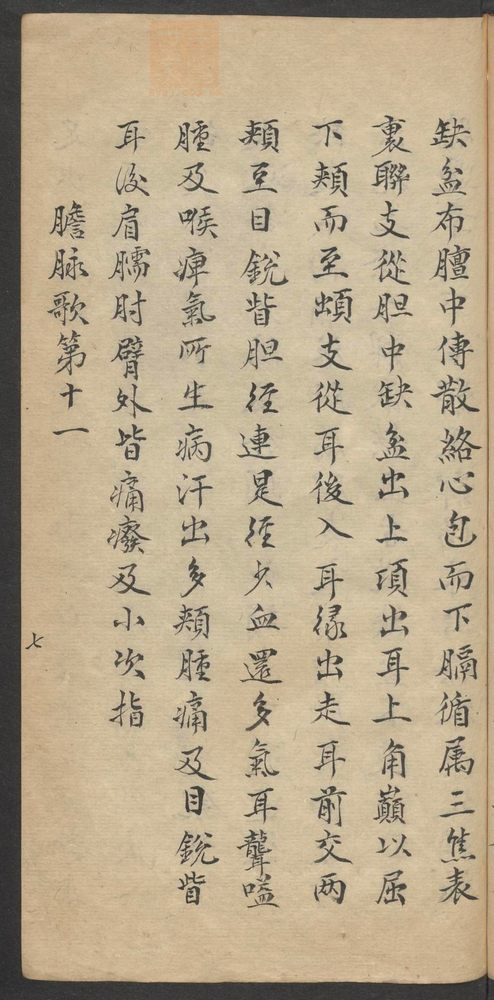 缺盆布膻中傳散絡心包而下膈循属三焦表
裏聯支從胆中缺盆出上項出耳上角巔以屈
下頰而至䪼支從耳後入耳緣出走耳前交两
頰至目銳眥胆徑連是徑少血還多氣耳聾嗌
腫及喉痺氣所生病汗出多頰腫痛及目銳眥
耳後肩臑肘臂外皆痛癈及小次指
膽脉歌第十一
七